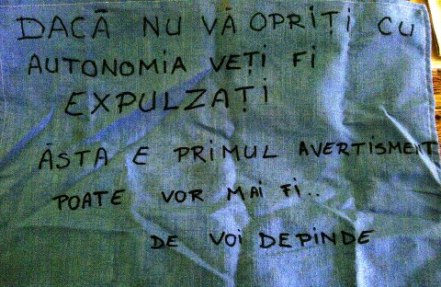 DACĂ NU VĂ OPRIȚI CU
AUTONOMIA VEȚI FI
EXPULZAȚI
ĂSTA E PRIMUL AVERTISMENT
POATE VOR MAI FI..
DE VOI DEPINDE